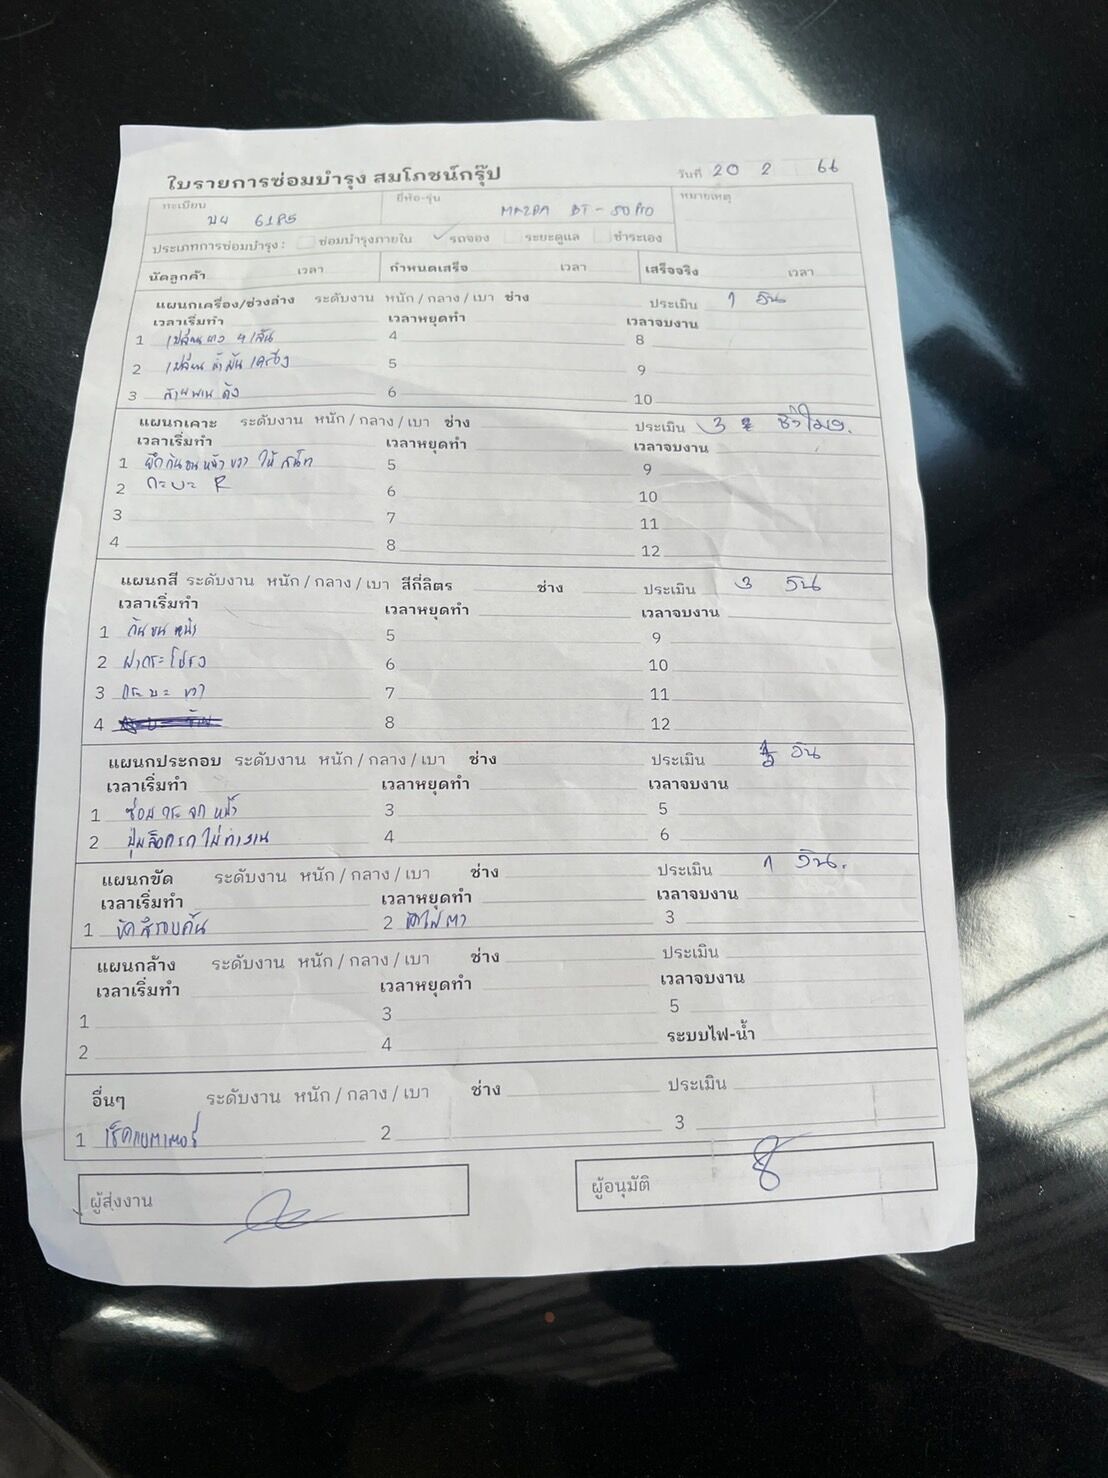 ใบรายการซ่อมบำรุง สมโภชน์กรุ๊ป วันที่ 20 2 66
ทะเบียน ยี่ห้อ-รุ่น MAZDA BT-50 PRO หมายเหตุ
ประเภทการซ่อมบำรุง: ซ่อมบำรุงภายใน รถจอง ระยะดูแล ชำระเอง
นัดลูกค้า เวลา กำหนดเสร็จ เวลา เสร็จจริง เวลา
แผนกเครื่อง/ช่วงล่าง ระดับงาน หนัก / กลาง / เบา ช่าง ประเมิน 1 วัน
เวลาเริ่มทำ เวลาหยุดทำ เวลาจบงาน
1 เปลี่ยนยาง 4 เส้น 4 8
2 เปลี่ยนน้ำมันเครื่อง 5 9
3 สายพานดัง 6 10
แผนกเคาะ ระดับงาน หนัก / กลาง / เบา ช่าง ประเมิน 3 ชั่วโมง.
เวลาเริ่มทำ เวลาหยุดทำ เวลาจบงาน
1 กันชนหน้าขวา ให้สนิท 5 9
2 กระบะ R 6 10
3 7 11
4 8 12
แผนกสี ระดับงาน หนัก / กลาง / เบา สีกี่ลิตร ช่าง ประเมิน 3 วัน
เวลาเริ่มทำ เวลาหยุดทำ เวลาจบงาน
1 กันชนหน้า 5 9
2 ฝากระโปรง 6 10
3 กระบะ ขวา 7 11
4 8 12
แผนกประกอบ ระดับงาน หนัก / กลาง / เบา ช่าง ประเมิน วัน
เวลาเริ่มทำ เวลาหยุดทำ เวลาจบงาน
1 ซ่อมกระจกหน้า 3 5
2 ปุ่มล็อครถไม่ทำงาน 4 6
แผนกขัด ระดับงาน หนัก / กลาง / เบา ช่าง ประเมิน 1 วัน.
เวลาเริ่มทำ เวลาหยุดทำ เวลาจบงาน
1 ขัดสีรอบคัน 2 ขัดไฟตา 3
แผนกล้าง ระดับงาน หนัก / กลาง / เบา ช่าง ประเมิน
เวลาเริ่มทำ เวลาหยุดทำ เวลาจบงาน
1 3 5
2 4 ระบบไฟ-น้ำ
อื่นๆ ระดับงาน หนัก / กลาง / เบา ช่าง ประเมิน
1 เช็คแบตเตอรี่ 2 3
ผู้ส่งงาน ผู้อนุมัติ